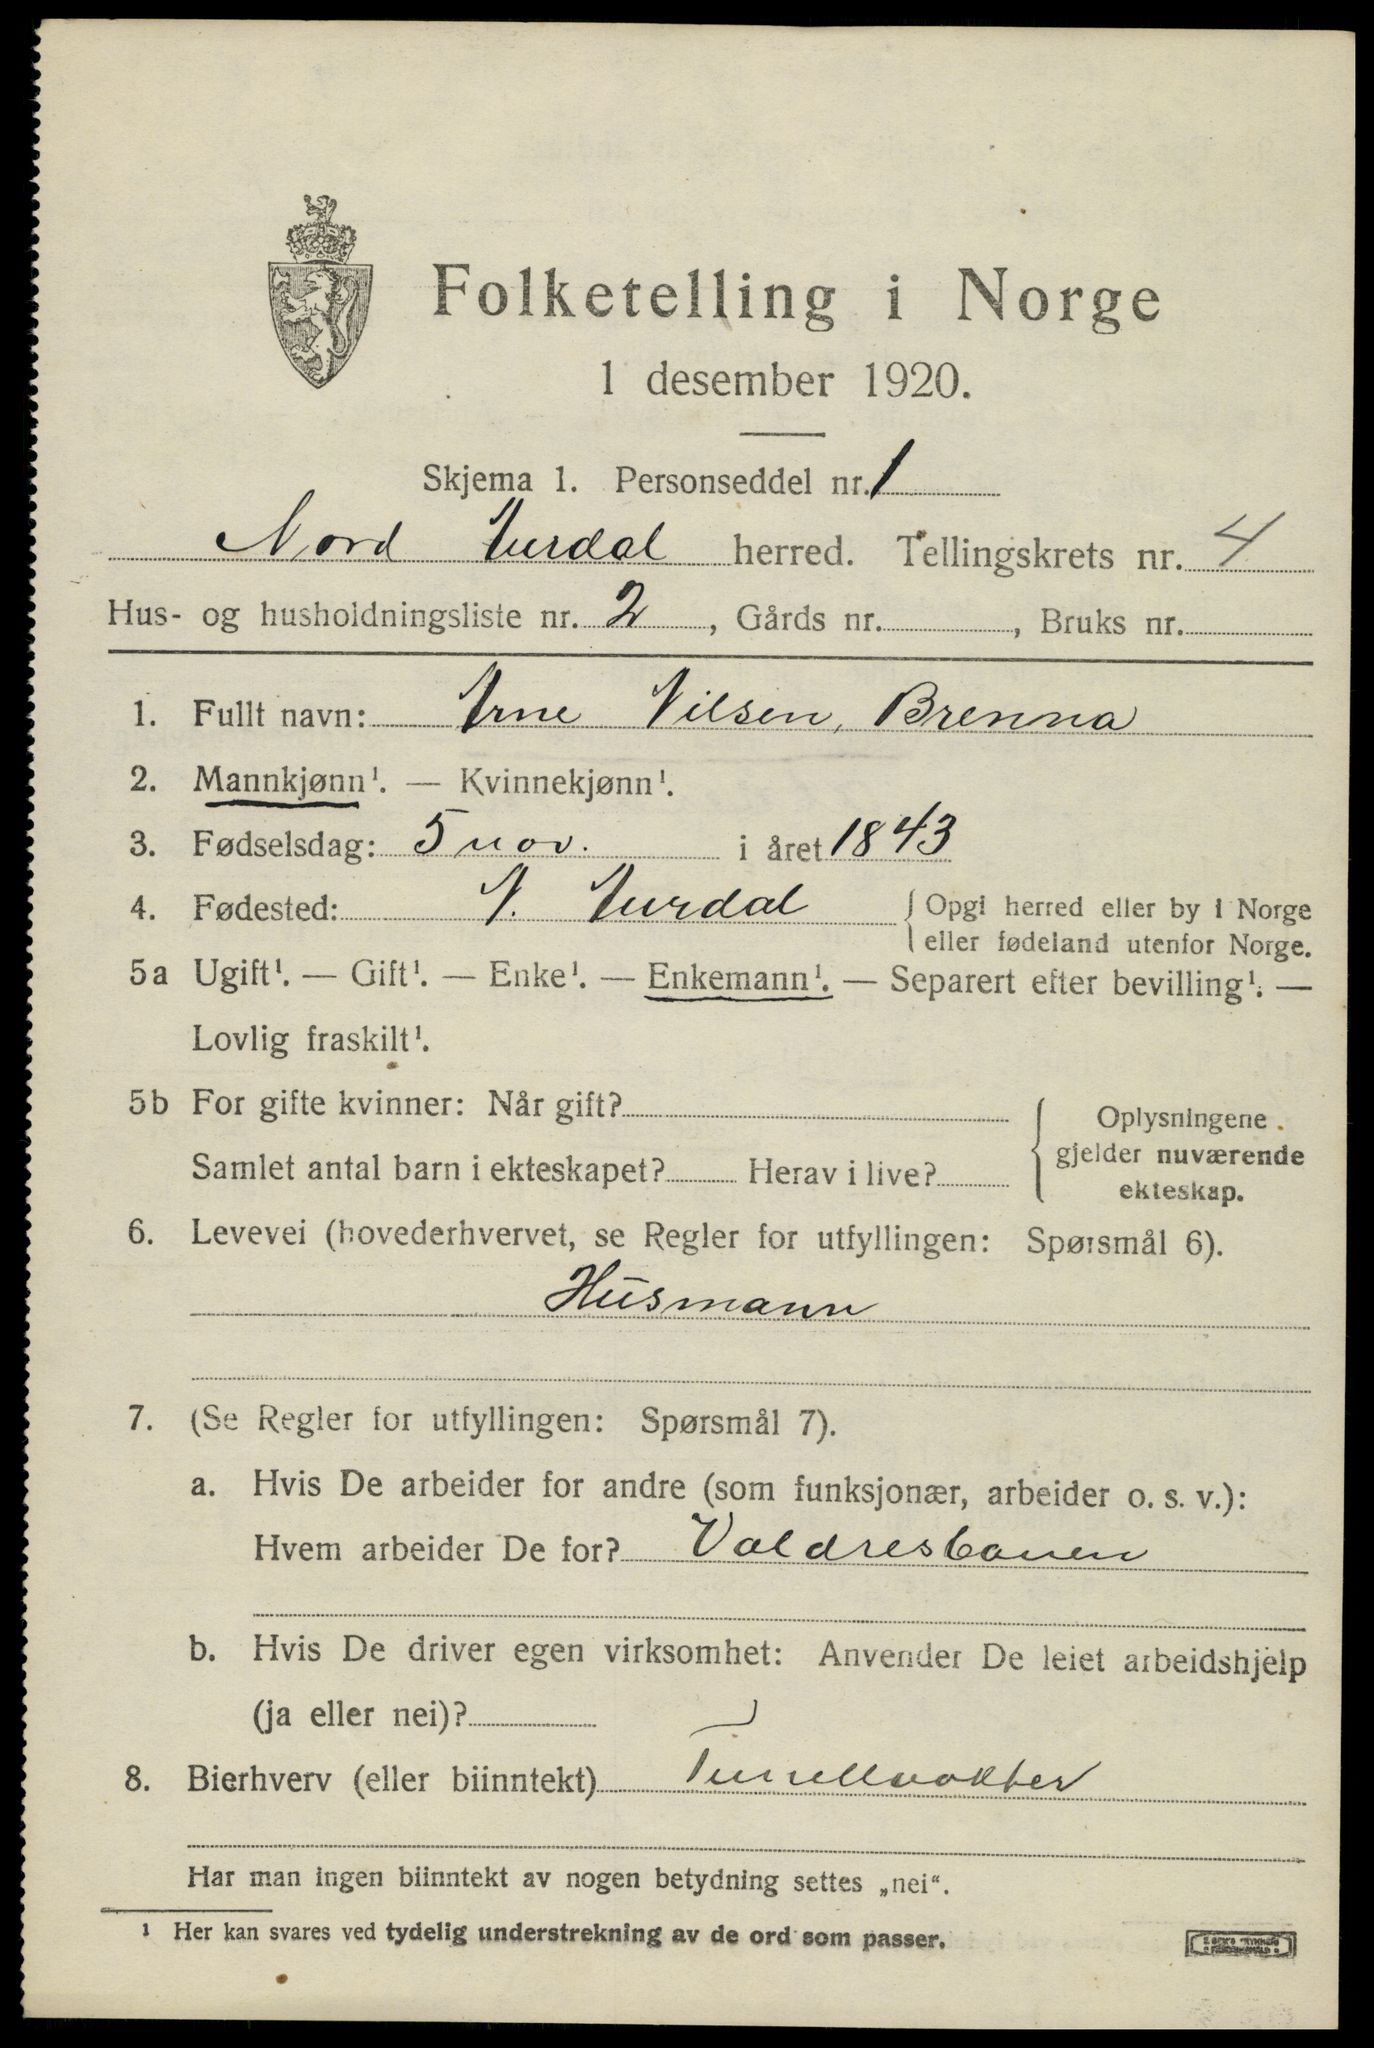 Folketelling i Norge
1 desember 1920.
Skjema 1. Personseddel nr. 1
Nord Aurdal herred. Tellingskrets nr. 4
Hus- og husholdningsliste nr. 2, Gårds nr. , Bruks nr.
1. Fullt navn: Arne Nilsen, Brenna
2. Mannkjønn¹. — Kvinnekjønn¹.
3. Fødselsdag: 5 nov. i året 1843
4. Fødested: N. Aurdal { Opgi herred eller by i Norge
eller fødeland utenfor Norge.
5a Ugift¹. — Gift¹. — Enke¹. — Enkemann¹. — Separert efter bevilling¹. —
Lovlig fraskilt¹.
5b For gifte kvinner: Når gift?
Samlet antal barn i ekteskapet? Herav i live?
Oplysningene
gjelder nuværende
ekteskap.
6. Levevei (hovederhvervet, se Regler for utfyllingen: Spørsmål 6).
Husmann
7. (Se Regler for utfyllingen: Spørsmål 7).
a. Hvis De arbeider for andre (som funksjonær, arbeider o. s. v.):
Hvem arbeider De for? Valdresbanen
b. Hvis De driver egen virksomhet: Anvender De leiet arbeidshjelp
(ja eller nei)?
8. Bierhverv (eller biinntekt) Tunellvokter
Har man ingen biinntekt av nogen betydning settes „nei".
¹ Her kan svares ved tydelig understrekning av de ord som passer.